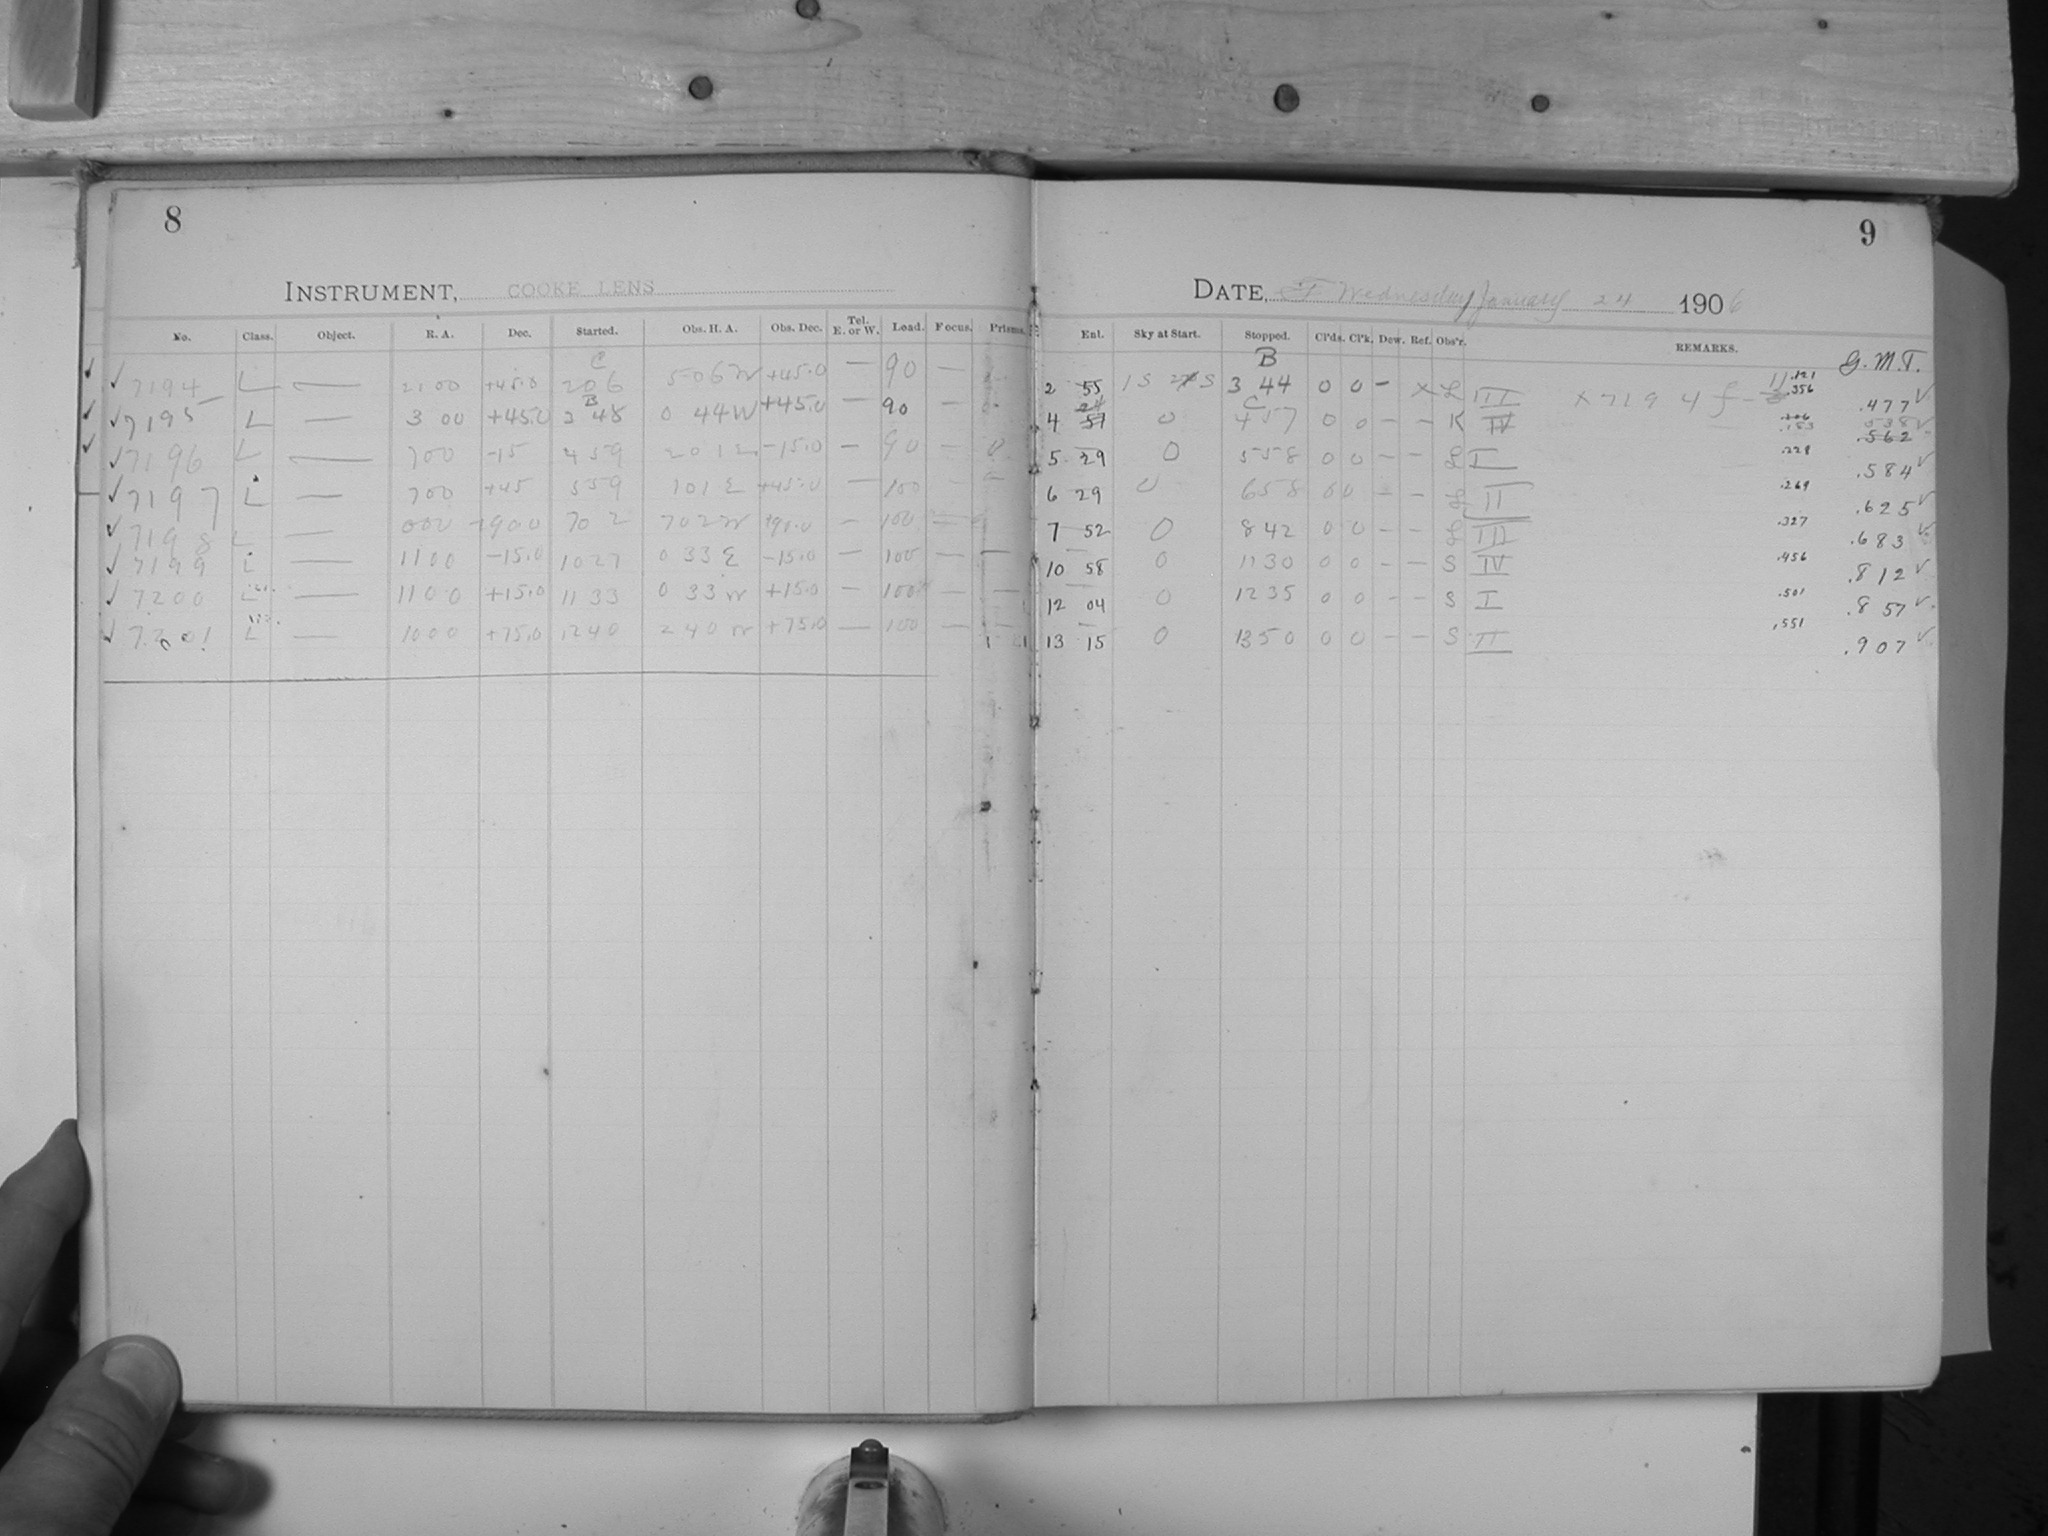 8
INSTRUMENT, COOKE LENS
No. Class. Object. R. A. Dec. Started. Obs. H. A. Obs. Dec. Tel. E. or W. Load. Focus. Prisms.
C
✓ ✓ 7194 L — 21 00 +45.0 2 06 5 06 W +45.0 — 90 —
B
✓ ✓ 7195 L — 3 00 +45.0 3 48 0 44 W +45.0 — 90
✓ ✓ 7196 L — 7 00 -15 4 59 2 01 E -15.0 — 90 — 0
✓ 7197 L — 7 00 +45 5 59 1 01 E +45.0 — 100 —
✓ 7198 L — 0 00 +90.0 7 02 7 02 W +90.0 — 100 —
✓ 7199 L — 11 00 -15.0 10 27 0 33 E -15.0 — 100 — —
✓ 7200 L — 11 00 +15.0 11 33 0 33 W +15.0 — 100 — —
✓ 7201 L — 10 00 +75.0 12 40 2 40 W +75.0 — 100 —
9
DATE, Wednesday January 24 1906
Enl. Sky at Start. Stopped. Cl'ds. Cl'k. Dew. Ref. Obs'r. REMARKS. G. M. T.
B
2 55 1 S S 3 44 0 0 - × L III × 7194 f - .121 .356 .477 ✓
C
4 24 0 4 57 0 0 - - K IV .562
5 29 0 5 58 0 0 - - L I .228 .584 ✓
6 29 0 6 58 0 0 - - L II .269 .625 ✓
7 52 0 8 42 0 0 - - L III .327 .683 ✓
10 58 0 11 30 0 0 - - S IV .456 .812 ✓
12 04 0 12 35 0 0 - - S I .501 .857 ✓
13 15 0 13 50 0 0 - - S II .551 .907 ✓